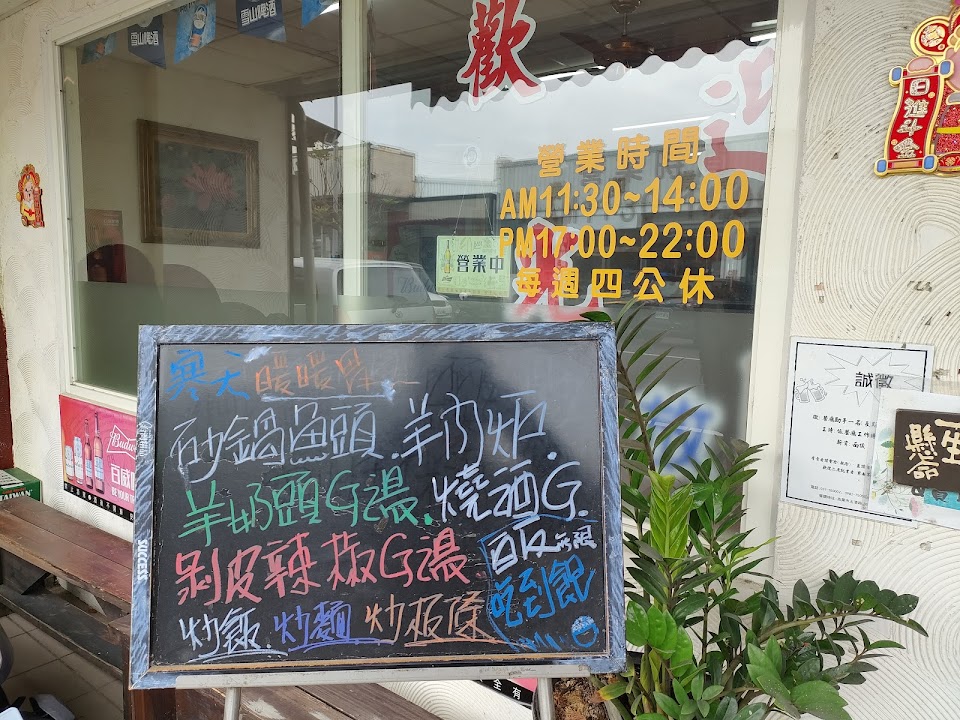 雪山啤酒
雪山啤酒
歡迎
光
營業時間
AM11:30~14:00
PM17:00~22:00
每週四公休
營業中
日進斗金
誠徵
懸命
Budw
百威
BE YOUR
TAIWAN
SUCCESS
寒天 暖暖胃~
砂鍋魚頭.羊肉爐.
羊奶頭G湯.燒酒G.
剝皮辣椒G湯.
白飯無限
吃到飽
炒飯.炒麵.炒板條
全有